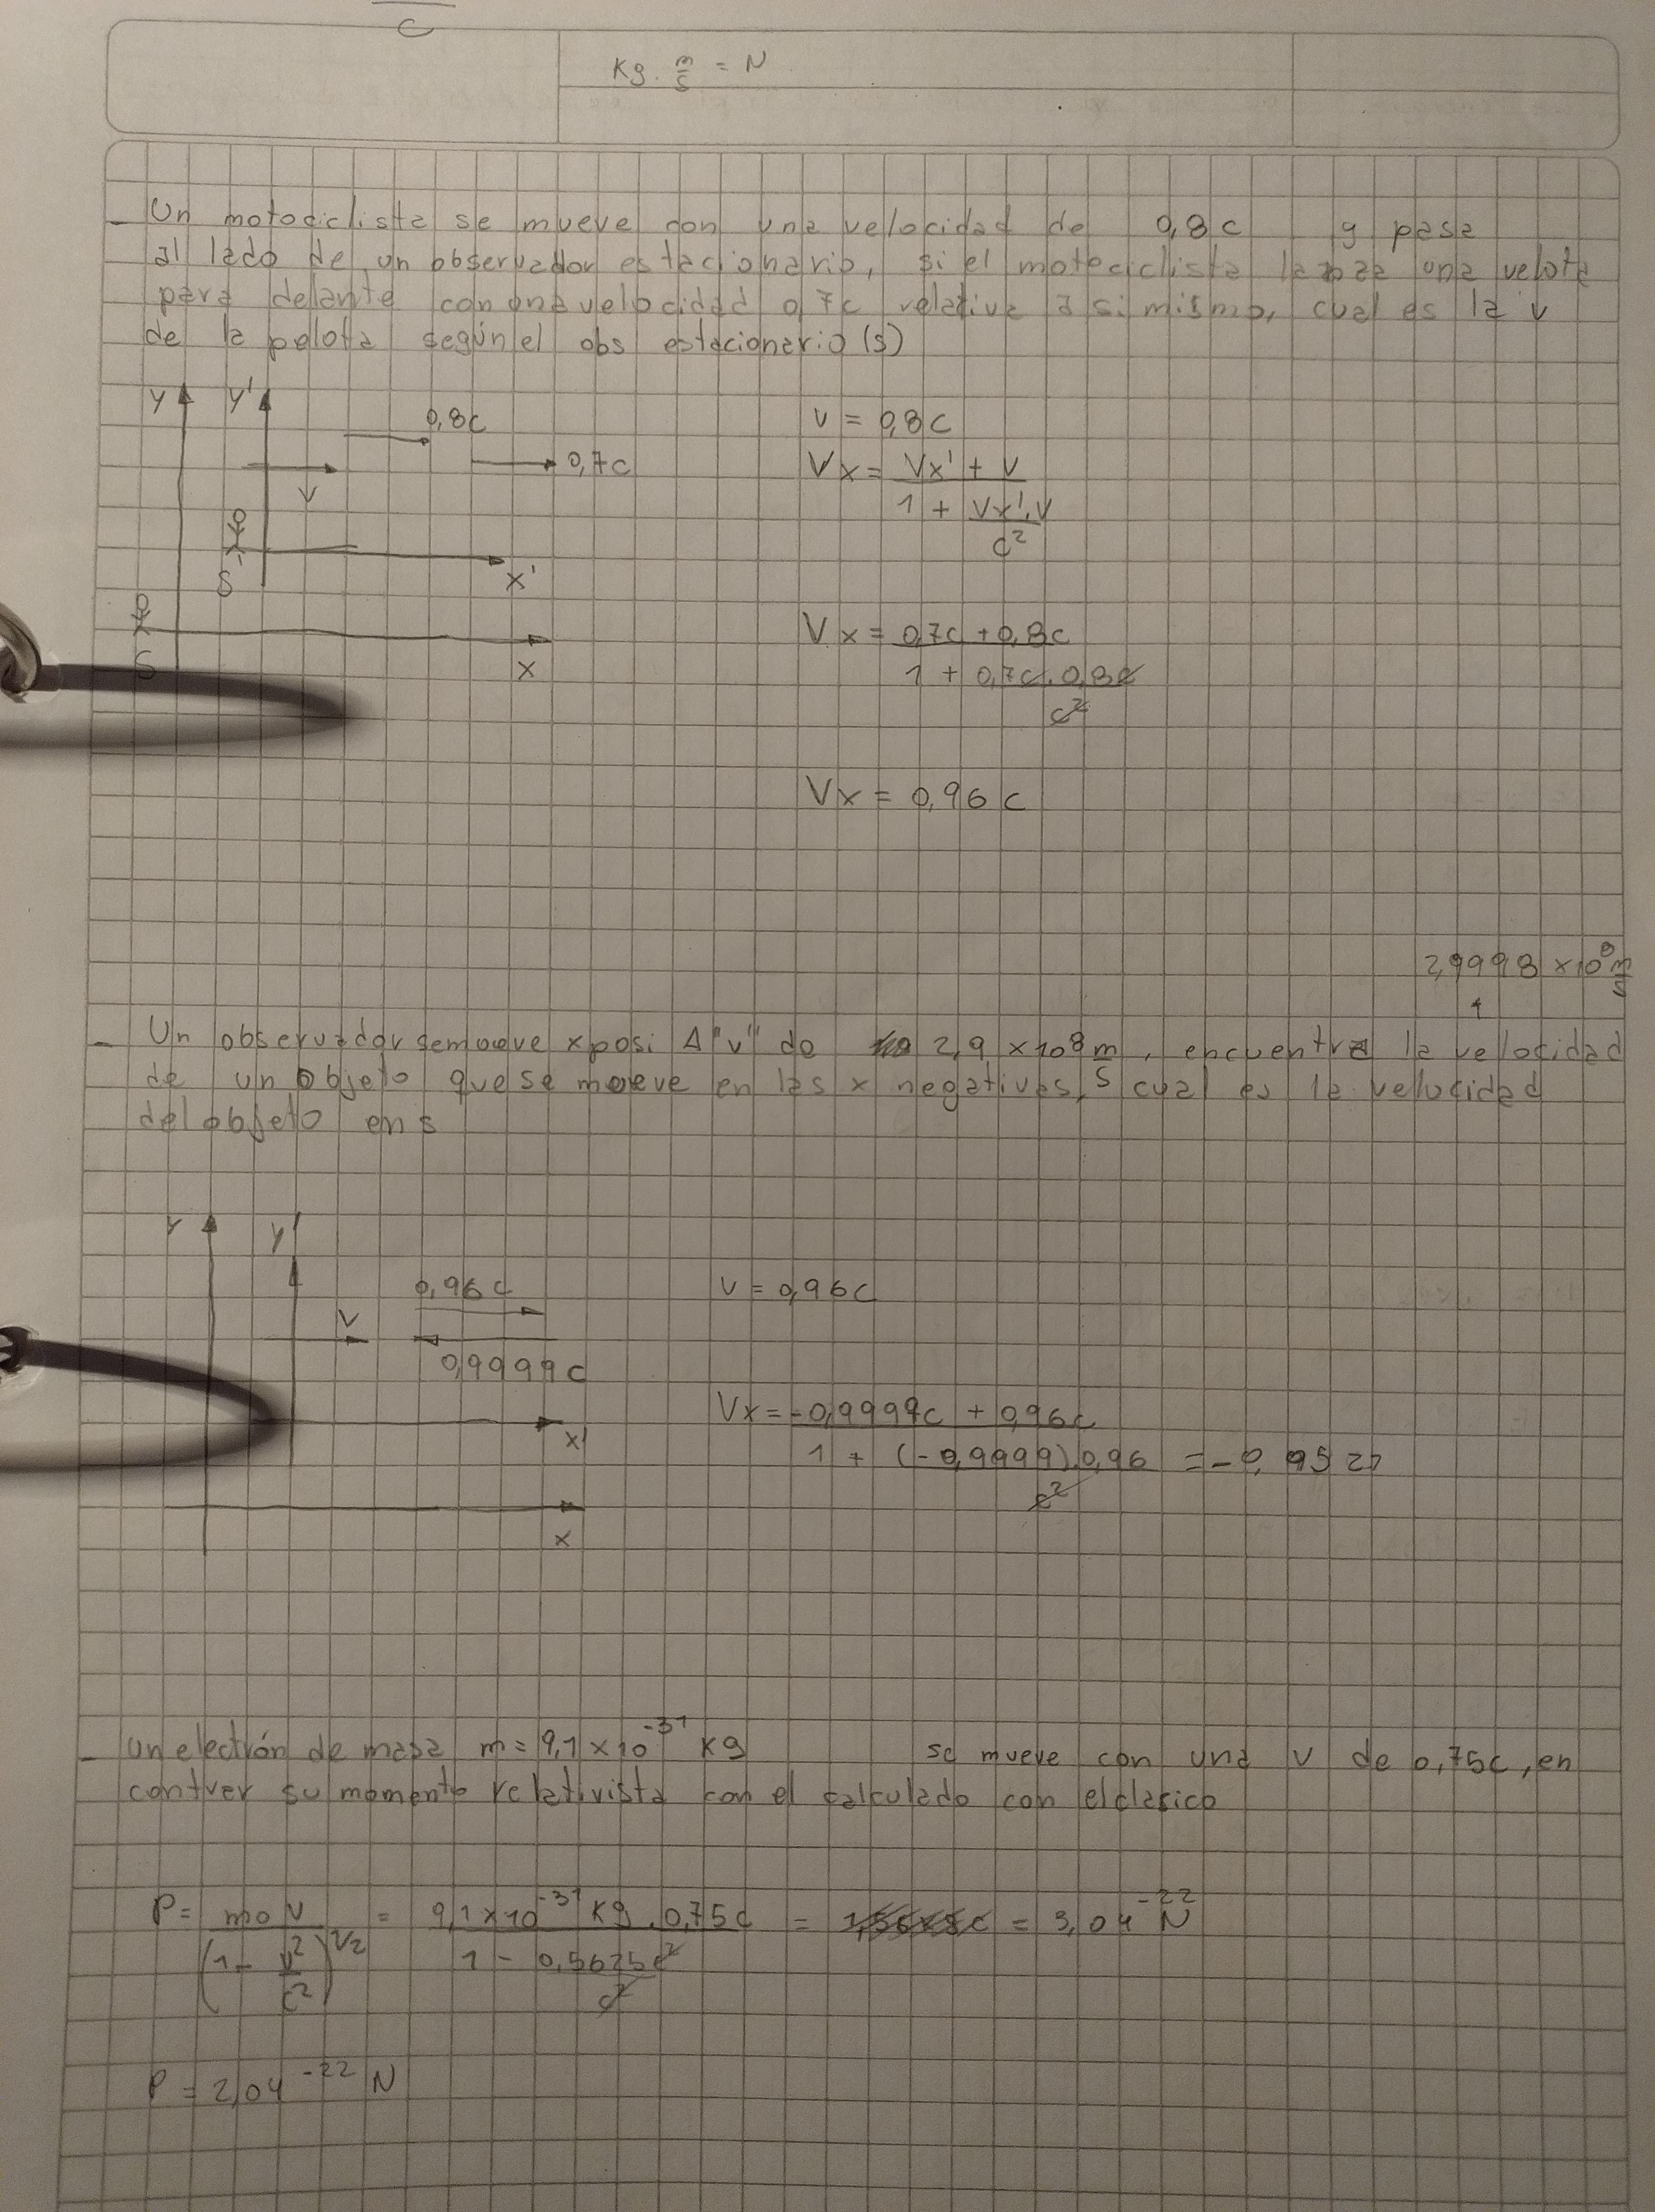 c
Kg. m/s = N
- Un motociclista se mueve con una velocidad de 0,8c y pasa
al lado de un observador estacionario, si el motociclista lanza una velota
para delante con una velocidad 0,7c relativa a si mismo, cual es la v
de la pelota según el obs estacionario (s)
Y Y' 0,8c V = 0,8c
0,7c Vx = (Vx' + V) / (1 + (Vx'.V)/c²)
V
S' X'
S X
Vx = (0,7c + 0,8c) / (1 + (0,7c.0,8c)/c²)
Vx = 0,96c
2,9998 x10⁸ m/s
- Un observador semueve x posi Δ "v" de 2,9 x10⁸ m/s, encuentra la velocidad
de un objeto que se mueve en las x negativas, cual es la velocidad
del objeto en s
Y Y'
0,96c V = 0,96c
V
0,9999c
Vx = (-0,9999c + 0,96c) / (1 + ((-0,9999).0,96)/c²) = -0,9527
X'
X
- un electrón de masa m = 9,1 x10⁻³¹ Kg se mueve con una v de 0,75c, en
contver su momento relativista con el calculado con el clasico
P = mo V / (1 - v²/c²)^1/2 = 9,1 x10⁻³¹ Kg . 0,75c / (1 - 0,5625c²/c²) = = 3,04⁻²² N
P = 2,04⁻²² N